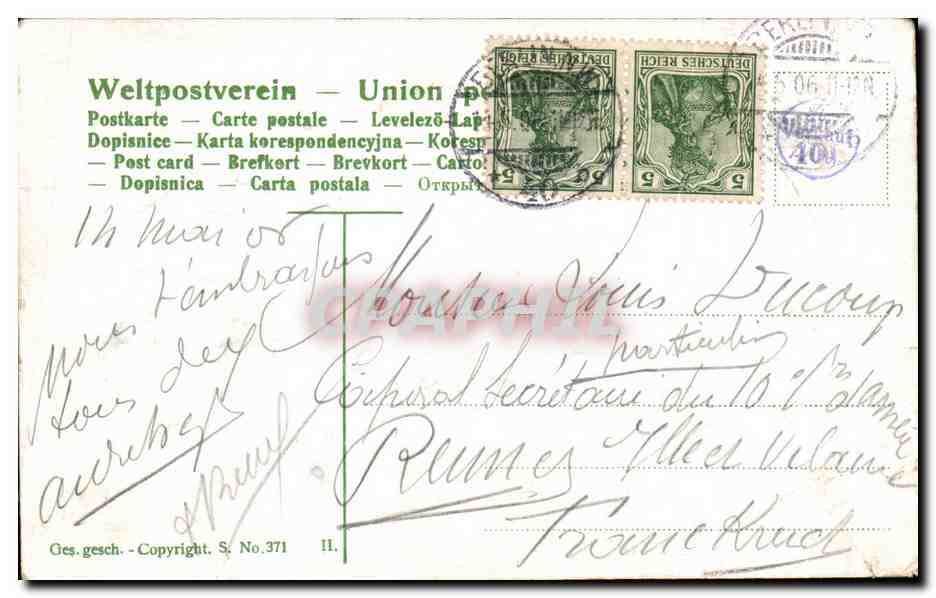 Weltpostverein — Union po
Postkarte — Carte postale — Levelező-Lap
Dopisnice — Karta korespondencyjna — Koresp
— Post card — Brefkort — Brevkort — Carto
— Dopisnica — Carta postala — Открыт
DEUTSCHES REICH
5 5
DEUTSCHES REICH
5 5
BERLIN
5 06 11-12N
409
14 Mai 06
nous t'embrassons
tous deux
Monsieur Louis Ducoup
particulier
Caporal Secrétaire du 10e Cps d'armée
Rennes Ille et Vilaine
Frankreich
CPAPHIL
Ges. gesch. - Copyright. S. No. 371 II.